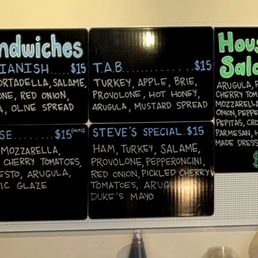 ndwiches
IANISH....$15
ORTADELLA, SALAME,
ONE, RED ONION,
A, OLIVE SPREAD
T.A.B. $15
TURKEY, APPLE, BRIE,
PROVOLONE, HOT HONEY,
ARUGULA, MUSTARD SPREAD
SE...$15
MOZZARELLA,
CHERRY TOMATOES,
ESTO, ARUGULA,
IC GLAZE
STEVE'S SPECIAL.$15
HAM, TURKEY, SALAME,
PROVOLONE, PEPPERONCINI,
RED ONION, PICKLED CHERRY
TOMATOES, ARUGULA
DUKE'S MAYO
Hous
Sala
ARUGULA, F
CHERRY TOMA
MOZZARELLA
ONION, PEPPER
PEPITAS, CRO
PARMESAN, H
MADE DRESS
$